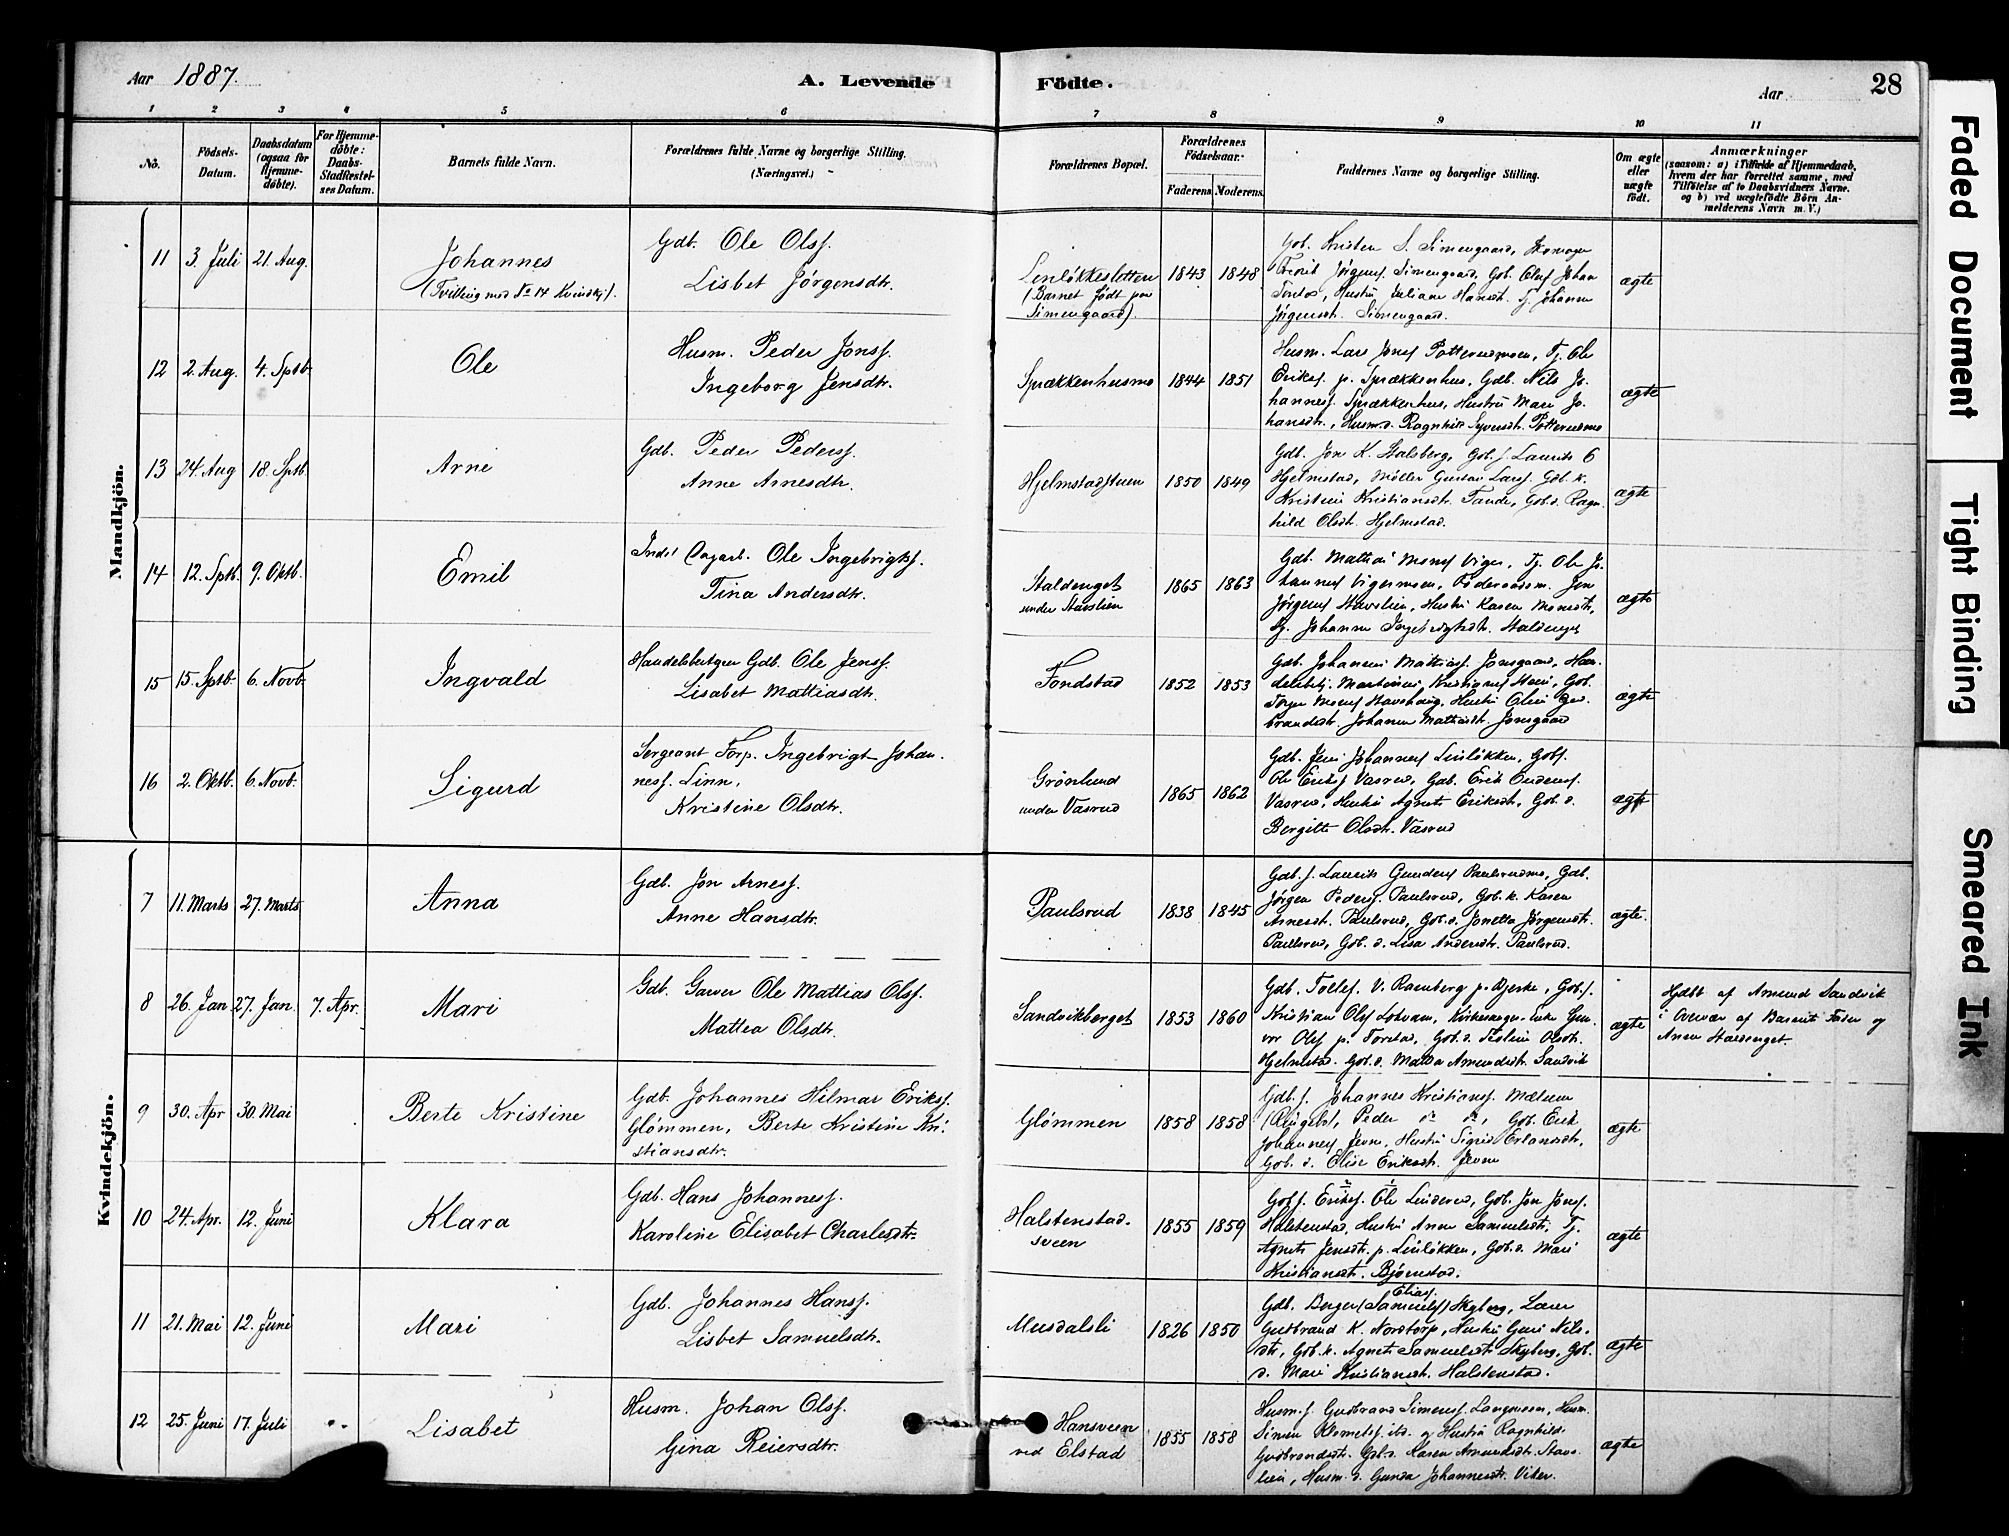 Aar 1887.
A. Levende Födte.
Aar
28
1 2 3 4 5 6 7 8 9 10 11
No. Födsels-Datum. Daabsdatum (ogsaa for Hjemmedöbte). For Hjemmedöbte: Daabs-Stadfæstelses Datum. Barnets fulde Navn. Forældrenes fulde Navne og borgerlige Stilling. (Næringsvei.) Forældrenes Bopæl. Forældrenes Födselsaar. Faderens. Moderens. Faddernes Navne og borgerlige Stilling. Om ægte eller uægte födt. Anmærkninger (saasom: a) i Tilfælde af Hjemmedaab, hvem der har forrettet samme, med Tilföielse af to Daabsvidners Navne. og b) ved uægtefödte Börn Anmelderens Navn m.V.)
Mandkjön.
11 3. Juli 21. Aug. Johannes
(Tvilling med No 14 Kvindkj.).
Gdb. Ole Olsf.
Lisbet Jørgensdtr.
Linløkkesletten
(Barnet født paa
Simengaard).
1843 1848
Gdb. Kristen S. Simengaard,
Jørgensf. Simengaard, Gdb. Oluf Johan
Hustru Juliane Hansdt. Tj. Johanne
Jørgensdt. Simengaard.
ægte
12 2. Aug. 4. Sptb. Ole
Husm. Peder Jonsf.
Ingeborg Jensdtr.
Sprækkenhusmo
1844 1851
Husm. Lars Jonsf Potterudmoen, Tj. Ole
Eriksf. p. Sprækkenhus, Gdb. Nils Jo-
hannesf. Sprækkenhus, Hustru Mari Jo-
hansdt., Husm.d. Ragnhild Syversdt.
ægte
13 24. Aug 18. Sptb. Arne
Gdb. Peder Pedersf.
Anne Arnesdtr.
Hjelmstadstuen
1850 1849
Gdb. Jon K. Stalsberg, Gdb. s. Laurits
Hjelmstad, Møller Gustav Larsf. Gdb. k.
Kristine Kristiansdt. Tande, Gdb.d. Ragn-
hild Olsdt. Hjelmstad.
ægte
14 12. Sptb. 9. Oktb. Emil
Inds! Dagarb. Ole Ingebrigtsf.
Tina Andersdtr.
Staldenget
under Stavslien
1865 1863
Gdb. Mathias Monsf Viger, Tj. Ole Jo-
hannesf Vigermoen, Føderaadsm. Jon
Jørgensf Stavslien, Hustru Karen Monsdt,
Tj. Johanne Ingebrigtsdt. Staldenget
ægte
15 15. Sptb. 6. Novb. Ingvald
Handelsbetjen Gdb. Ole Jensf.
Lisabet Mattiasdtr.
Fondstad
1852 1853
Gdb. Johannes Mattiasf. Jonsgaard, Han-
delsbetj. Martinius Kristiansf Gdb.
Monsf Stavshaug, Hustru Oline Gud-
brandsdt. Johanne Mathiasdt. Jonsgaard
ægte
16 2. Oktb. 6. Novb. Sigurd
Sergeant Torp. Ingebrigt Johan-
nesf. Linn,
Kristine Olsdtr.
Grønlund
under Vasrud
1865 1862
Gdb. Jens Johannesf Linløkken, Gdbs.
Ole Eriksf Vasrud, Gdb. Erik
Vasrud, Hustru Agnete Eriksdt, Gdb. d.
Bergitte Olsdt. Vasrud
ægte
Kvindekjön.
7 11. Marts 27. Marts Anna
Gdb. Jon Arnesf.
Anne Hansdtr.
Paulsrud
1838 1845
Gdb. s. Laurits Gundersf Paulsrudmo, Gdb.
Jörgen Pedersf. Paulsrud, Gdb. k. Karen
Arnesdt. Paulsrud, Gdb. d. Jonetta Jørgensdt.
Paulsrud, Gdb. d. Lisa Andersdt. Paulsrud.
ægte.
8 26. Jan 27. Jan. 7. Apr. Mari
Gdb. Garver Ole Mattias Olsf.
Mattea Olsdtr.
Sandvikberget
1853 1860
Gdb. Tollef. V. Ramberg p. Bjerke, Gdb.s.
Kristian Olsf Kirkesanger
Olsf p. Forstad, Gdb. d. Olsdt.
Hjelmstad. Gdb. d. Mattea Amundsdt. Sandvik
ægte
Hjdbt af Amund Sandvik
i Overvær af Barnets Fader og
Anne Staldenget.
9 30. Apr 30. Mai Berte Kristine
Gdb. Johannes Hilmar Eriksf.
Glømmen, Berte Kristine Kri-
stiansdtr.
Glømmen
1858 1858
Gdb. s. Johannes Kristiansf. Mælum
(Ringebo), Peder do do, Gdb. Erik
Johannesf Jevne, Hustru Sigrid Erlandsdt,
Gdb. d. Elise Eriksdt. Jevne
ægte
10 24. Apr. 12. Juni Klara
Gdb. Hans Johannesf.
Karoline Elisabet Charlesdtr.
Halstenstad-
sveen
1855 1859
Gdbs. Eriksf. Ole Linderud, Gdb. Jon Jonsf.
Halstenstad, Hustru Anne Samuelsdt, Tj.
Agnete Jensdt. p. Linløkken, Gdb. d. Mari
Kristiansdt. Bjørnstad.
ægte
11 21. Mai 12. Juni Mari
Gdb. Johannes Hansf.
Lisbet Samuelsdtr.
Musdalsli
1826 1850
Eliasf.
Gdb. Berger (Samuelsf) Skyberg, Lærer
Gudbrand K. Nordtorp, Hustru Guri Nils-
dtr, Gdb. k. Agnete Samuelsdt Skyberg, Gdb.
d. Mari Kristiansdt. Halstenstad.
ægte
12 25. Juni 17. Juli Lisabet
Husm. Johan Olsf.
Gina Reiersdtr.
Hansveen
ved Elstad
1855 1858
Husm. s. Gudbrand Simensf. Langmoen, Husm.
Simen Klometsf ibd. og Hustru Ragnhild
Gudbrandsdt. Gdb. d. Karen Amundsdt. Stavs-
lien, Husm. d. Gunda Johannesdt. Viker.
ægte
Faded Document
Tight Binding
Smeared Ink